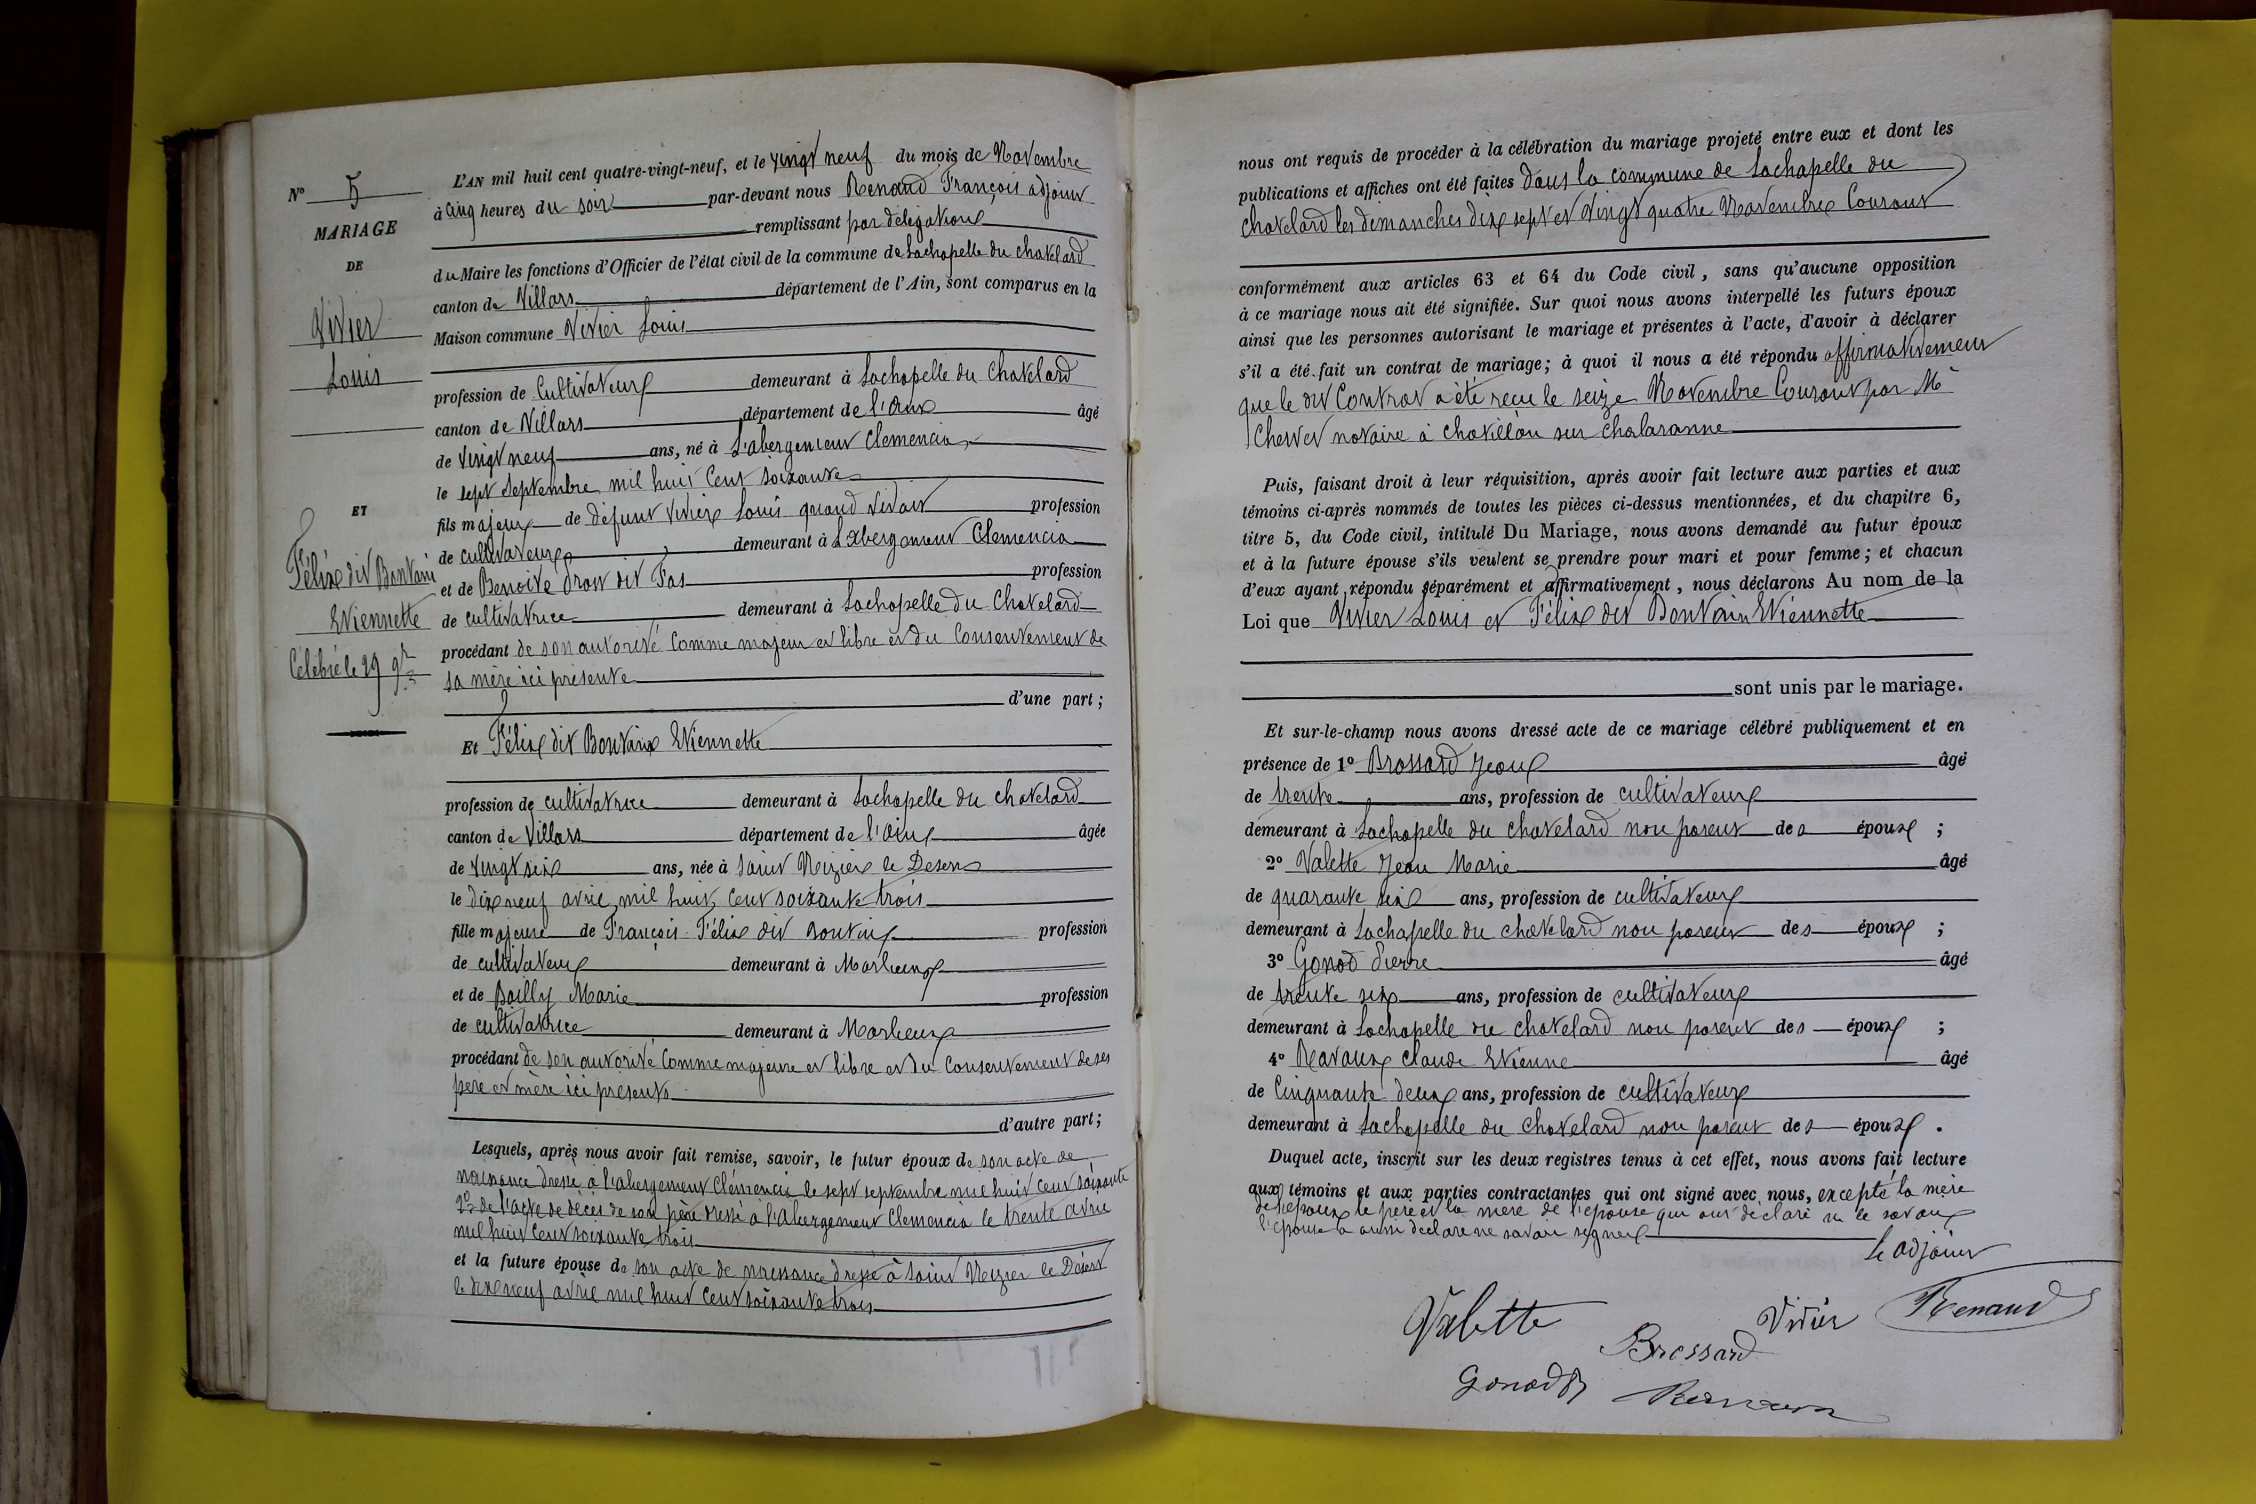 N° 5
MARIAGE
DE
Vivier
Louis
ET
Félix dit Bontain
Etiennette
Célébré le 29 9bre
L'AN mil huit cent quatre-vingt-neuf, et le vingt neuf du mois de Novembre
à cinq heures du soir par-devant nous Renaud François adjoint
remplissant par délégation
du Maire les fonctions d'Officier de l'état civil de la commune de Lachapelle du Chatelard
canton de Villars département de l'Ain, sont comparus en la
Maison commune Vivier Louis
profession de Cultivateur demeurant à Lachapelle du Chatelard
canton de Villars département de l'Ain âgé
de vingt neuf ans, né à L'abergement Clemencia
le sept septembre mil huit Cent soixante
fils majeur de défunt Vivier Louis quand vivait profession
de cultivateur demeurant à L'abergement Clemencia
et de Benoite Drou dit Fas profession
de cultivatrice demeurant à Lachapelle du Chatelard
procédant de son autorité Comme majeur et libre et du Consentement de
sa mère ici présente
d'une part ;
Et Félix dit Bontain Etiennette
profession de cultivatrice demeurant à Lachapelle du chatelard
canton de Villars département de l'Ain âgée
de vingt six ans, née à Saint Nizier le Desert
le dix neuf avril mil huit cent soixante trois
fille majeure de François Félix dit Bontain profession
de cultivateur demeurant à Marlieux
et de Bailly Marie profession
de cultivatrice demeurant à Marlieux
procédant de son autorité Comme majeure et libre et du Consentement de ses
père et mère ici présents
d'autre part ;
Lesquels, après nous avoir fait remise, savoir, le futur époux de son acte de
naissance dressé à l'abergement Clémencia le sept septembre mil huit cent soixante
2° de l'acte de décès de son père dressé à l'Abergement Clemencia le trente avril
mil huit Cent soixante trois
et la future épouse de son acte de naissance dressé à Saint Nizier le Désert
le dix neuf avril mil huit cent soixante trois
nous ont requis de procéder à la célébration du mariage projeté entre eux et dont les
publications et affiches ont été faites dans la commune de Lachapelle du
chatelard les dimanches dix sept et vingt quatre Novembre Courant
conformément aux articles 63 et 64 du Code civil, sans qu'aucune opposition
à ce mariage nous ait été signifiée. Sur quoi nous avons interpellé les futurs époux
ainsi que les personnes autorisant le mariage et présentes à l'acte, d'avoir à déclarer
s'il a été fait un contrat de mariage ; à quoi il nous a été répondu affirmativement
que le dit Contrat a été recu le seize Novembre Courant par Me
notaire à chatillon sur chalaranne
Puis, faisant droit à leur réquisition, après avoir fait lecture aux parties et aux
témoins ci-après nommés de toutes les pièces ci-dessus mentionnées, et du chapitre 6,
titre 5, du Code civil, intitulé Du Mariage, nous avons demandé au futur époux
et à la future épouse s'ils veulent se prendre pour mari et pour femme ; et chacun
d'eux ayant répondu séparément et affirmativement, nous déclarons Au nom de la
Loi que Vivier Louis et Félix dit Bontain Etiennette
sont unis par le mariage.
Et sur-le-champ nous avons dressé acte de ce mariage célébré publiquement et en
présence de 1° Brossard Jean âgé
de trente ans, profession de cultivateur
demeurant à Lachapelle du chatelard non parent des époux ;
2° Valette Jean Marie âgé
de quarante six ans, profession de cultivateur
demeurant à Lachapelle du chatelard non parent des époux ;
3° Gonod Pierre âgé
de trente six ans, profession de cultivateur
demeurant à Lachapelle du chatelard non parent des époux ;
4° Ravaux Claude Etienne âgé
de Cinquante deux ans, profession de cultivateur
demeurant à Lachapelle du chatelard non parent des époux .
Duquel acte, inscrit sur les deux registres tenus à cet effet, nous avons fait lecture
aux témoins et aux parties contractantes qui ont signé avec nous, excepté la mère
de l'époux le père et la mère de l'épouse qui ont déclaré ne le savoir
l'épouse a aussi déclaré ne savoir signer
Le adjoint
Valette Vivier Renaud
Brossard
Gonod P